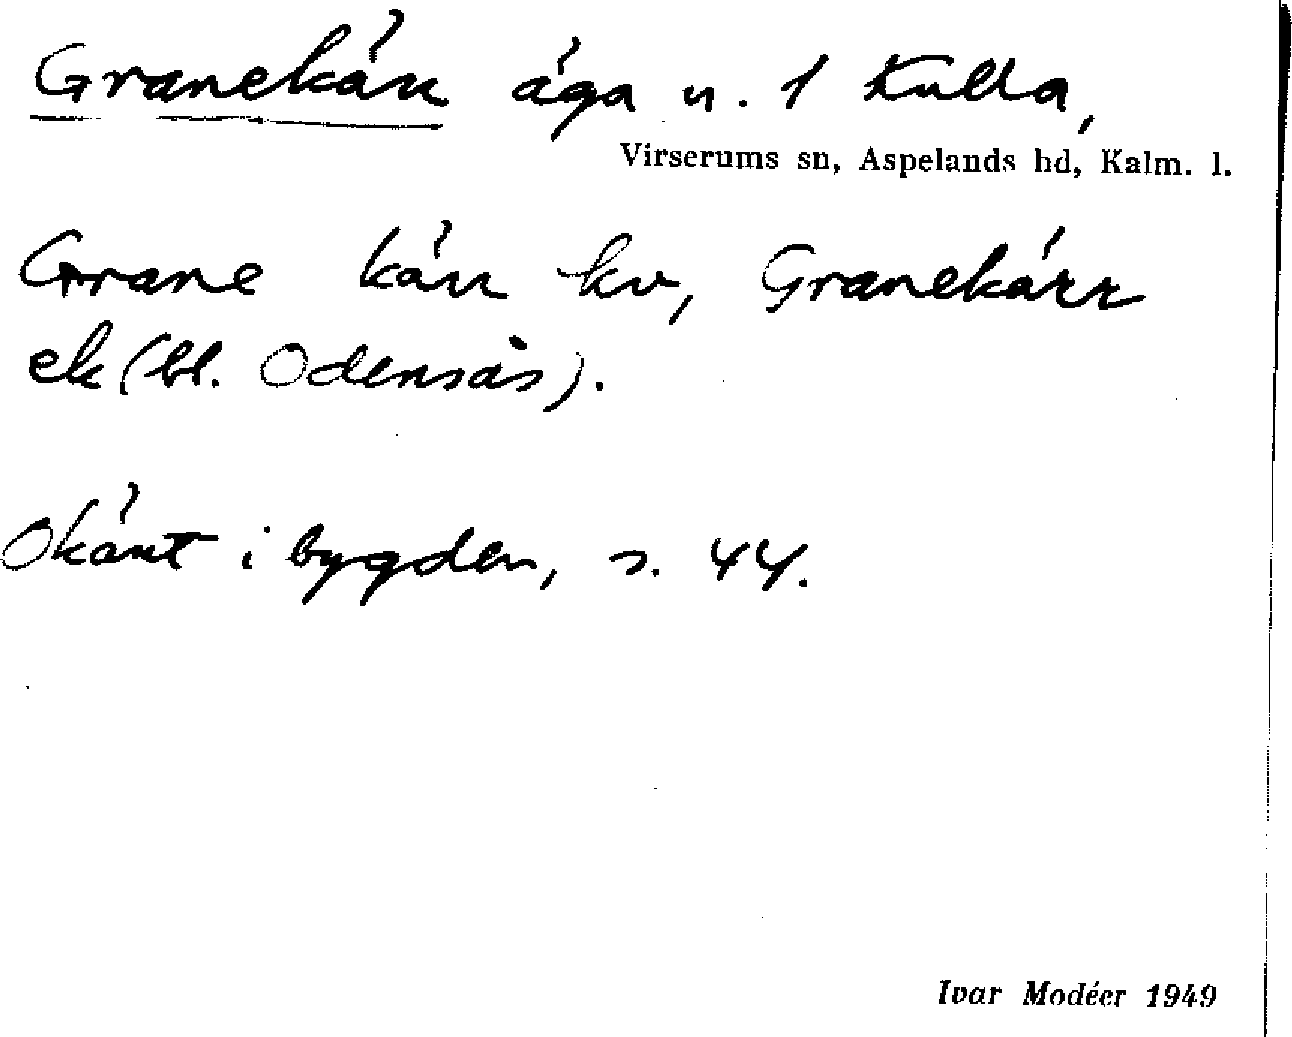 Granekärr äga u. 1 Kulla,
Virserums sn, Aspelands hd, Kalm. l.
Grane kärr kv, Granekärr
ek (bl. Odensås).
Okänt i bygden, s. 44.
Ivar Modéer 1949